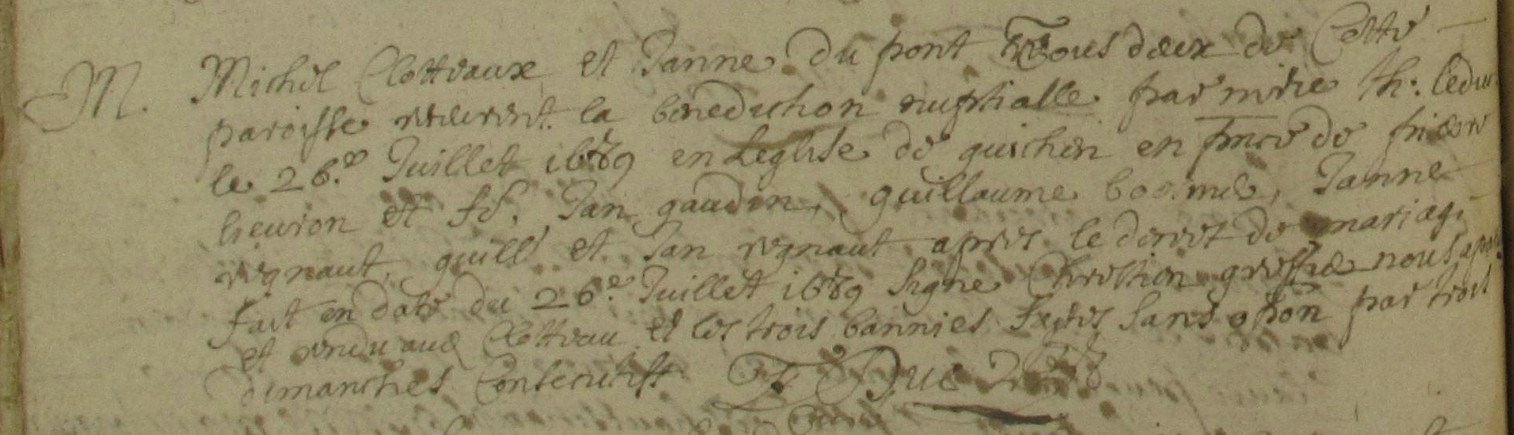 M. Michel Clotteaux et Janne du pont Tous deux de Cette
paroisse recevrent la benediction nuptialle par mire Th. leduc
le 26.e Juillet 1689 en Leglise de guichen en pnce de
heuron et fs. Jan gaudin, guillaume Janne
regnaut, guille et Jan regnaut apres le decret de mariage
fait en date du 26.e Juillet 1689 Signe Chrestien greffie nous apar
et rendu aud Clotteau et les trois bannies faites Sans opon par trois
dimanches Consecutifs T Duc